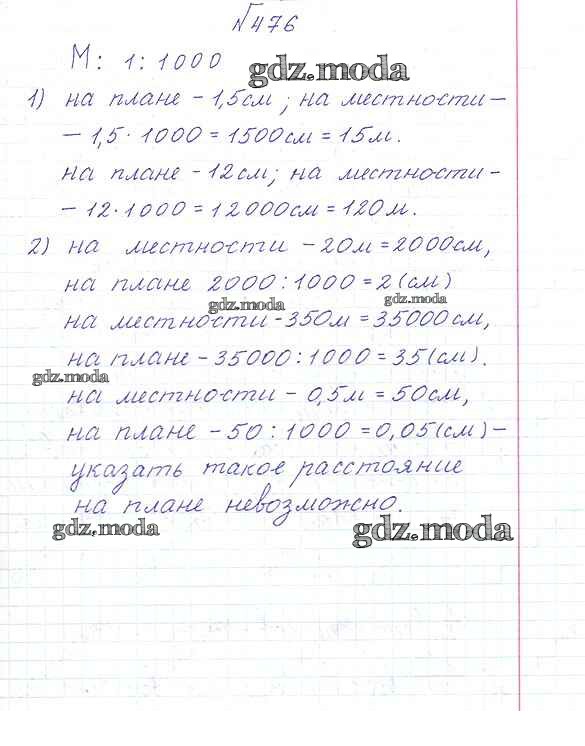 №476
М: 1:1000
gdz.moda
1) на плане - 1,5см ; на местности -
- 1,5 · 1000 = 1500см = 15м.
на плане - 12см; на местности -
- 12·1000 = 12000см = 120м.
2) на местности - 20м = 2000см,
на плане 2000 : 1000 = 2 (см)
gdz.moda gdz.moda
на местности - 350м = 35000см,
на плане - 35000 : 1000 = 35 (см).
gdz.moda
на местности - 0,5м = 50см,
на плане - 50 : 1000 = 0,05 (см) -
указать такое расстояние
на плане невозможно.
gdz.moda gdz.moda